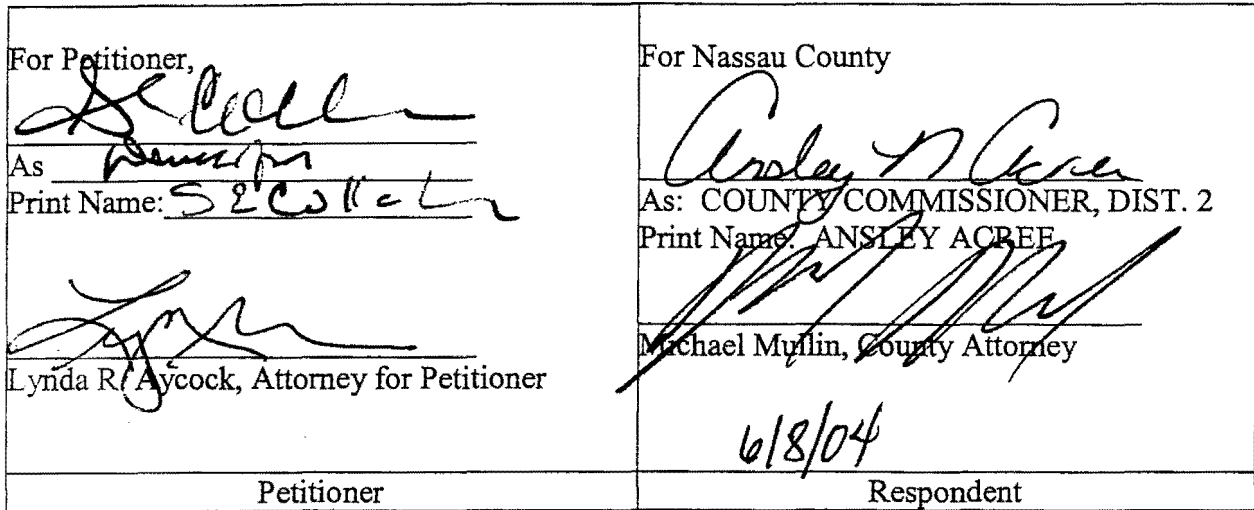 For Petitioner,
As
Print Name: S E
Lynda R. Aycock, Attorney for Petitioner
Petitioner
For Nassau County
Ansley N Acree
As: COUNTY COMMISSIONER, DIST. 2
Print Name: ANSLEY ACREE
Michael Mullin, County Attorney
6/8/04
Respondent